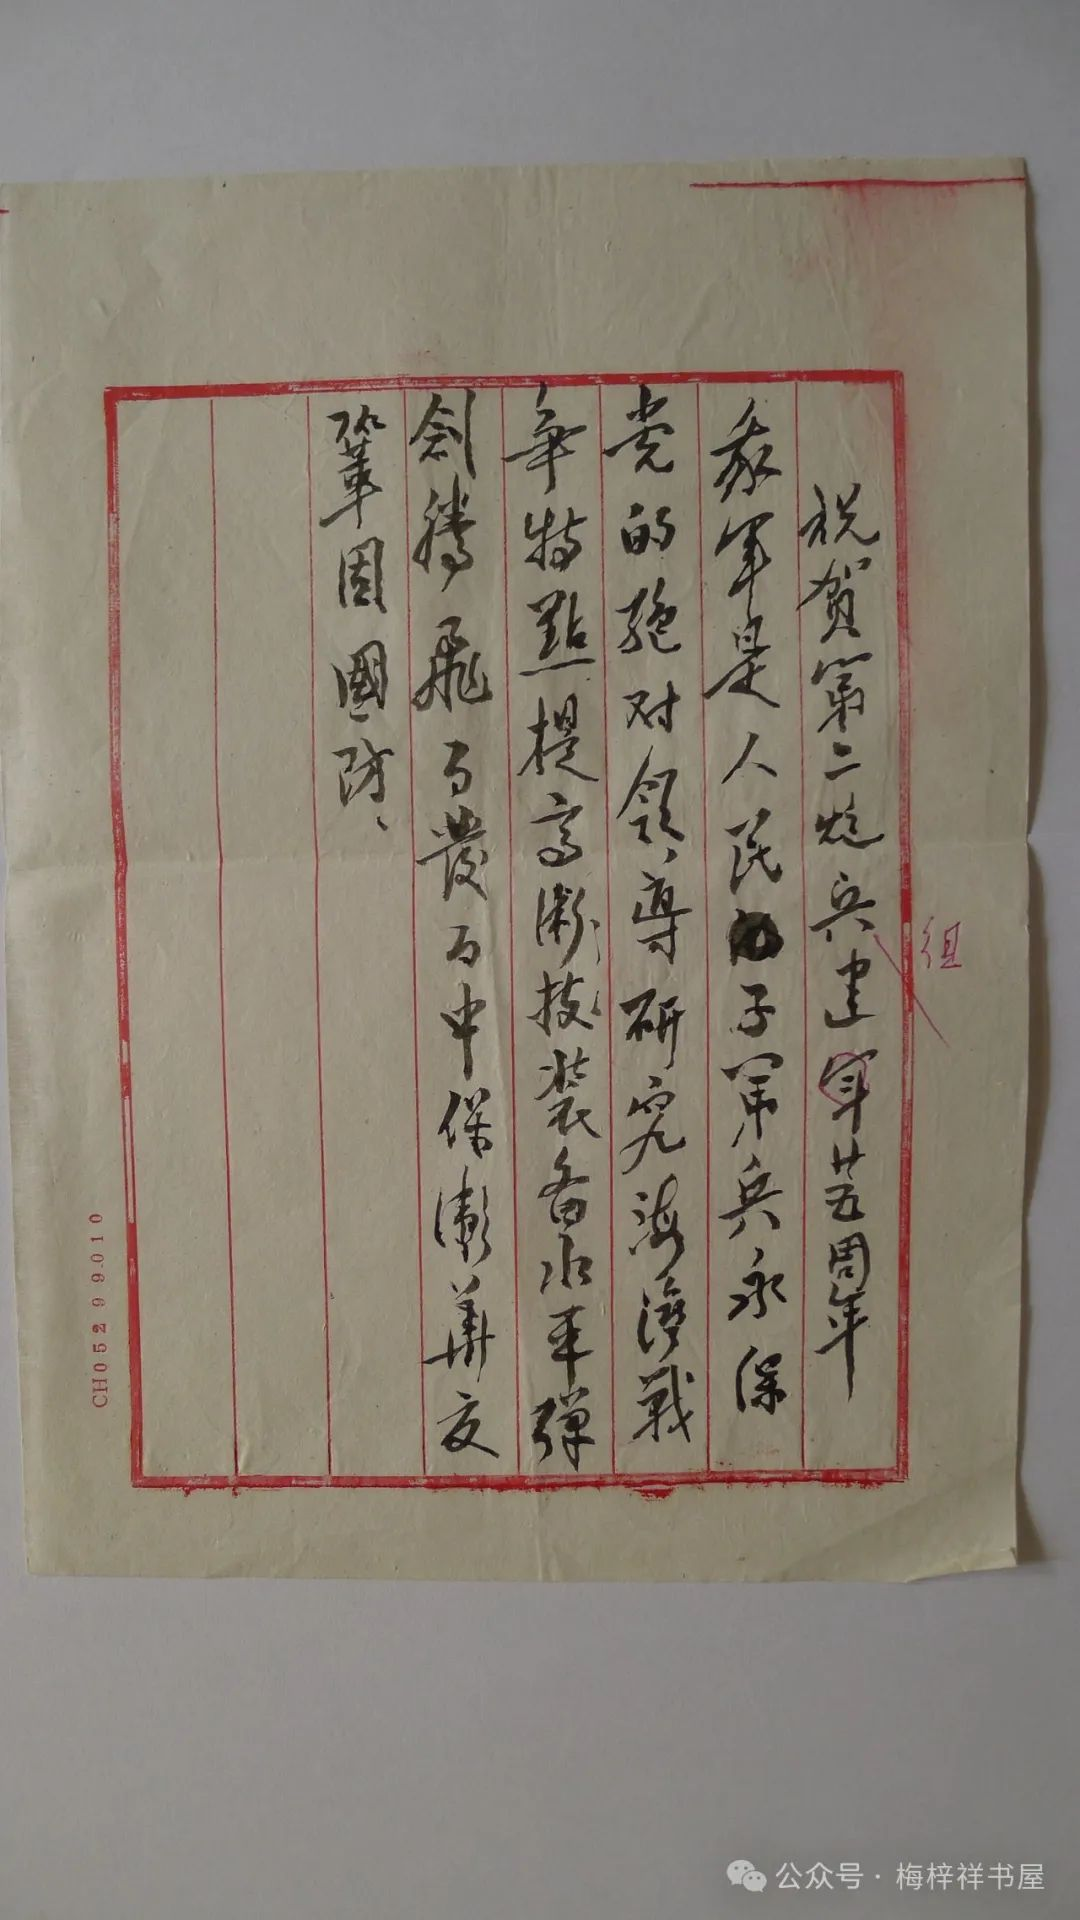 祝贺第二炮兵建军廿五周年
组
我军是人民子弟兵永保
党的绝对领导研究海湾战
争特點提高術技装备水平弹
剑腾飞百發百中保衛華夏
鞏固國防、
CH052 99.010
公众号·梅梓祥书屋